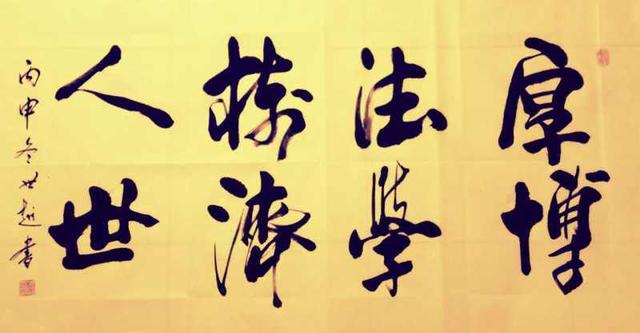 厚法樹人
博學濟世
丙申冬世越書